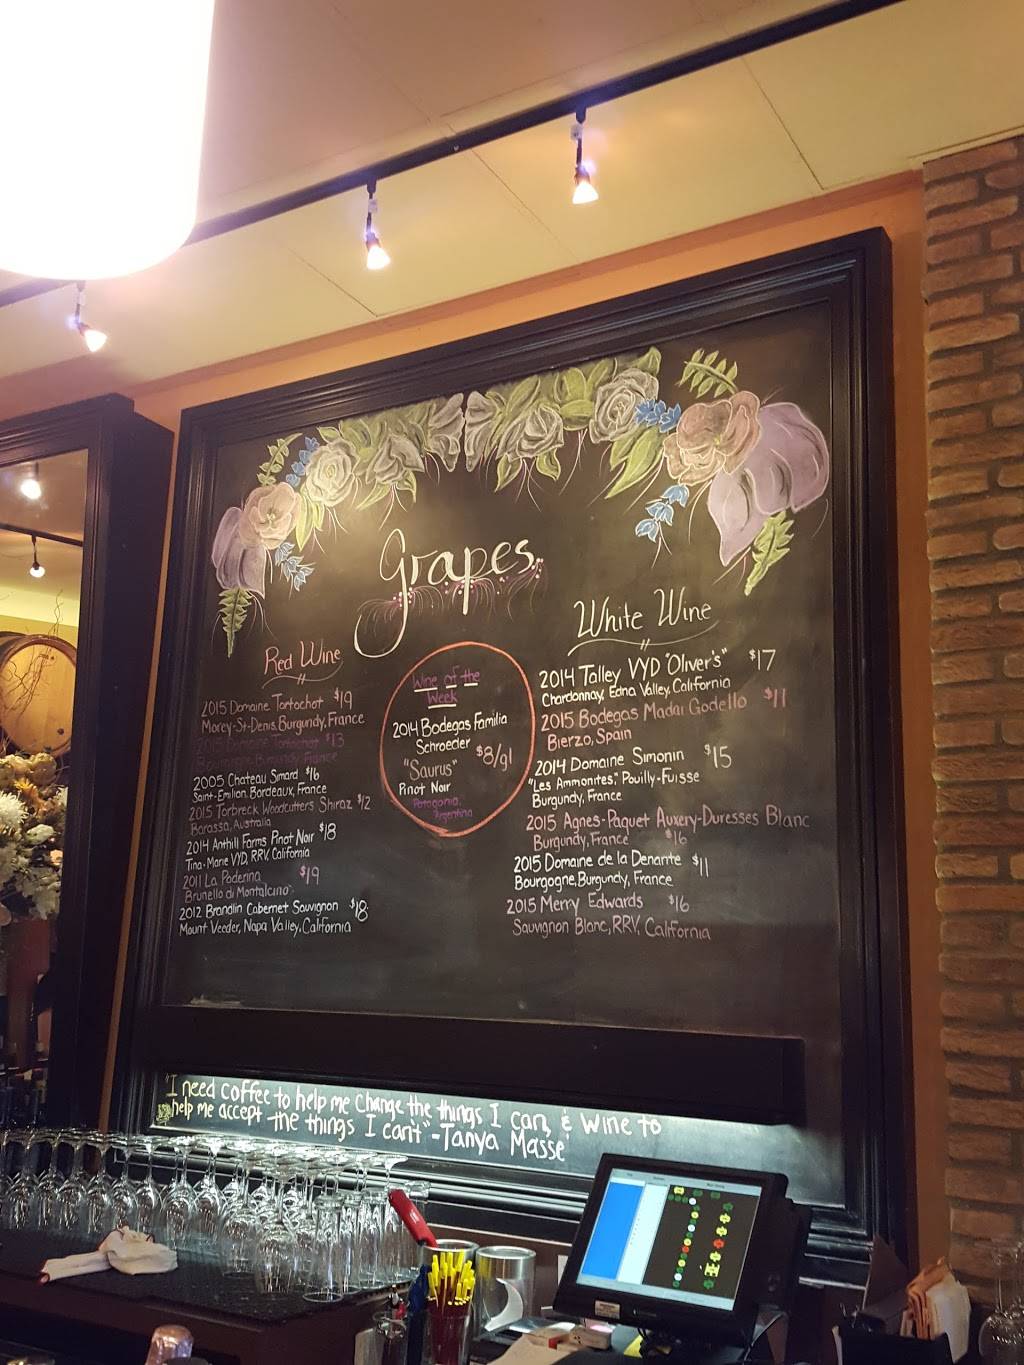 Grapes
Red Wine
2015 Domaine Tortochot $19
Morey-St-Denis, Burgundy, France
2015 Domaine Tortochot $13
Burgundy, France
2005 Chateau Simard $16
Saint-Emilion, Bordeaux, France
2015 Torbreck Woodcutters Shiraz $12
Barossa, Australia
2014 Anthill Farms Pinot Noir $18
Tina-Marie VYD, RRV, California
2011 La Poderina $19
Brunello di Montalcino
2012 Brandlin Cabernet Sauvignon $18
Mount Veeder, Napa Valley, California
Wine of the
Week
2014 Bodegas Familia
Schroeder
"Saurus" $8/gl
Pinot Noir
Patagonia,
Argentina
White Wine
2014 Talley VYD "Oliver's" $17
Chardonnay, Edna Valley, California
2015 Bodegas Madai Godello $11
Bierzo, Spain
2014 Domaine Simonin $15
"Les Ammonites", Pouilly-Fuisse
Burgundy, France
2015 Agnes-Paquet Auxery-Duresses Blanc
Burgundy, France $16
2015 Domaine de la Denante $11
Bourgogne, Burgundy, France
2015 Merry Edwards $16
Sauvignon Blanc, RRV, California
"I need coffee to help me change the things I can, & wine to
help me accept the things I can't" -Tanya Masse